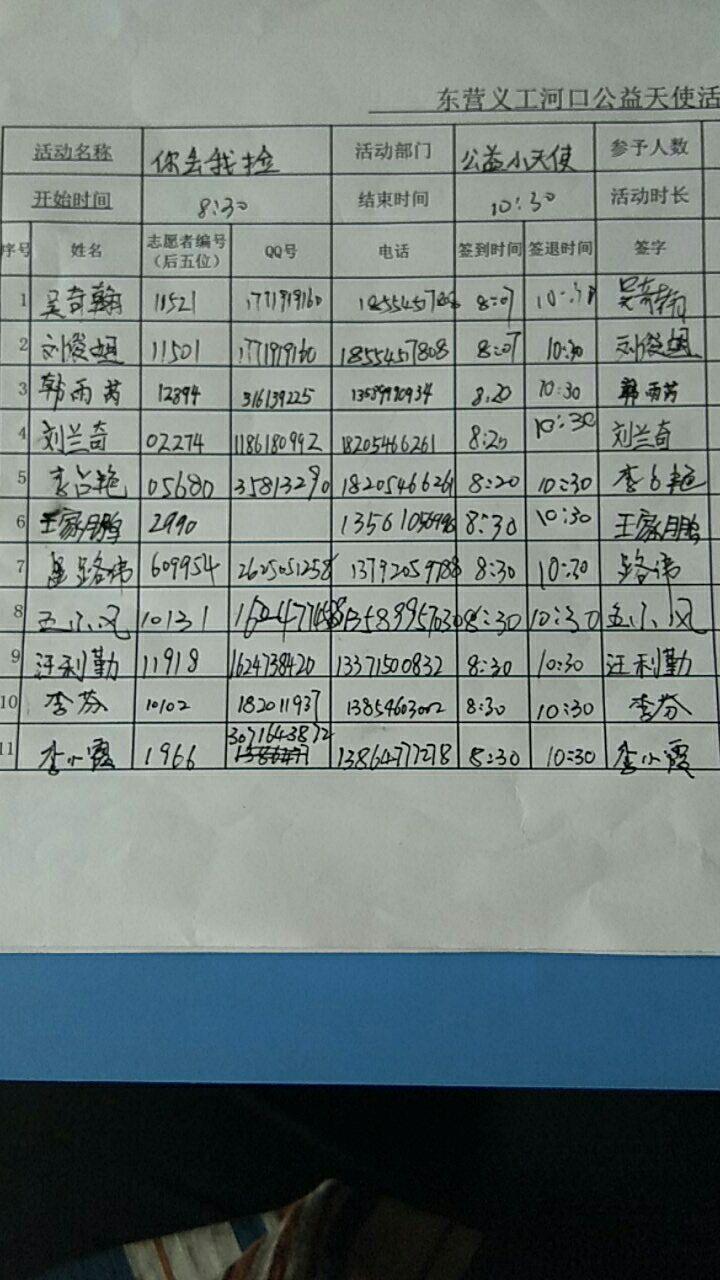 东营义工河口公益天使活
活动名称 你丢我捡 活动部门 公益小天使 参予人数
开始时间 8:30 结束时间 10:30 活动时长
序号 姓名 志愿者编号（后五位） QQ号 电话 签到时间 签退时间 签字
1 吴奇翰 11521 1771919160 18554457808 8:07 吴奇翰
2 刘俊 11501 1771919160 18554457808 8:07 10:30 刘俊
3 韩雨芮 12894 316139225 8:20 10:30 韩雨芮
4 刘兰奇 02274 1186180992 18205466261 8:20 10:30 刘兰奇
5 李占艳 05680 35813290 18205466261 8:20 10:30 李占艳
6 王家鹏 2990 8:30 10:30 王家鹏
7 路伟 609954 2625051258 13792059788 8:30 10:30 路伟
8 王小风 10131 8:30 10:30 王小风
9 汪利勤 11918 1624738420 13371500832 8:30 10:30 汪利勤
10 李芬 10102 182011937 13854603002 8:30 10:30 李芬
11 李小霞 1966 3071643872 13864777278 8:30 10:30 李小霞